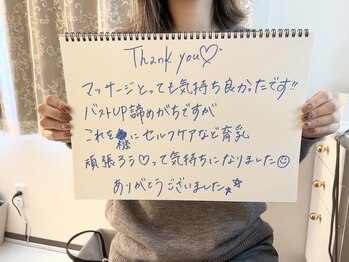 Thank you♡
マッサージとっても気持ち良かったです!!
バストUP諦めがちですが
これを機にセルフケアなど育乳
頑張ろう♡って気持ちになりました☺
ありがとうございました☆☆